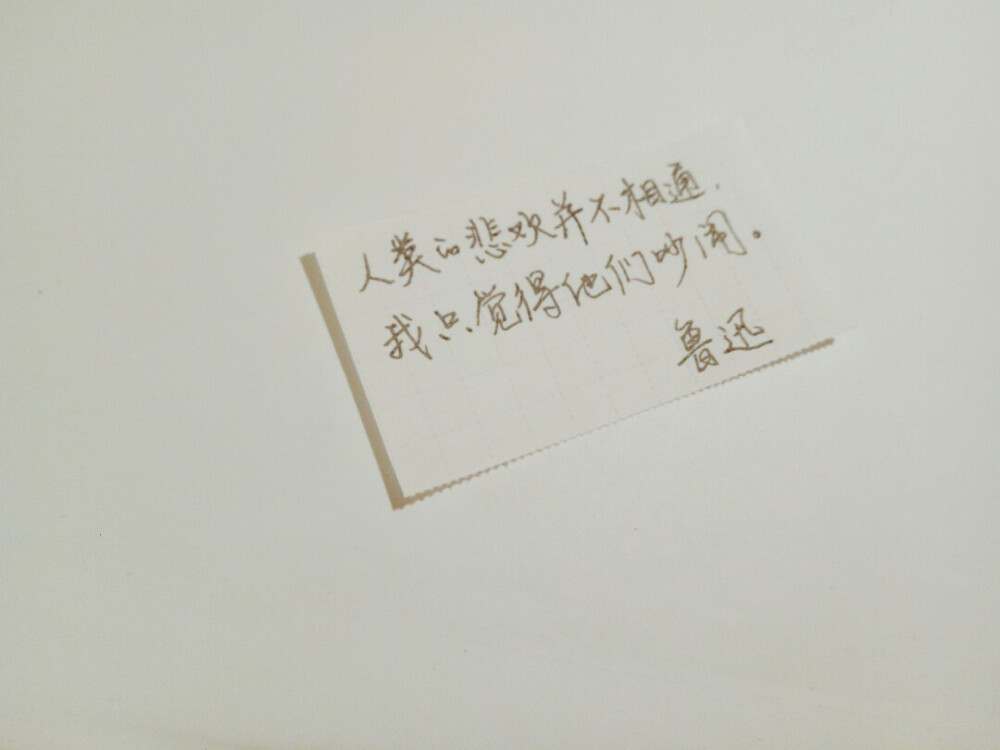 人类的悲欢并不相通，
我只觉得他们吵闹。
鲁迅